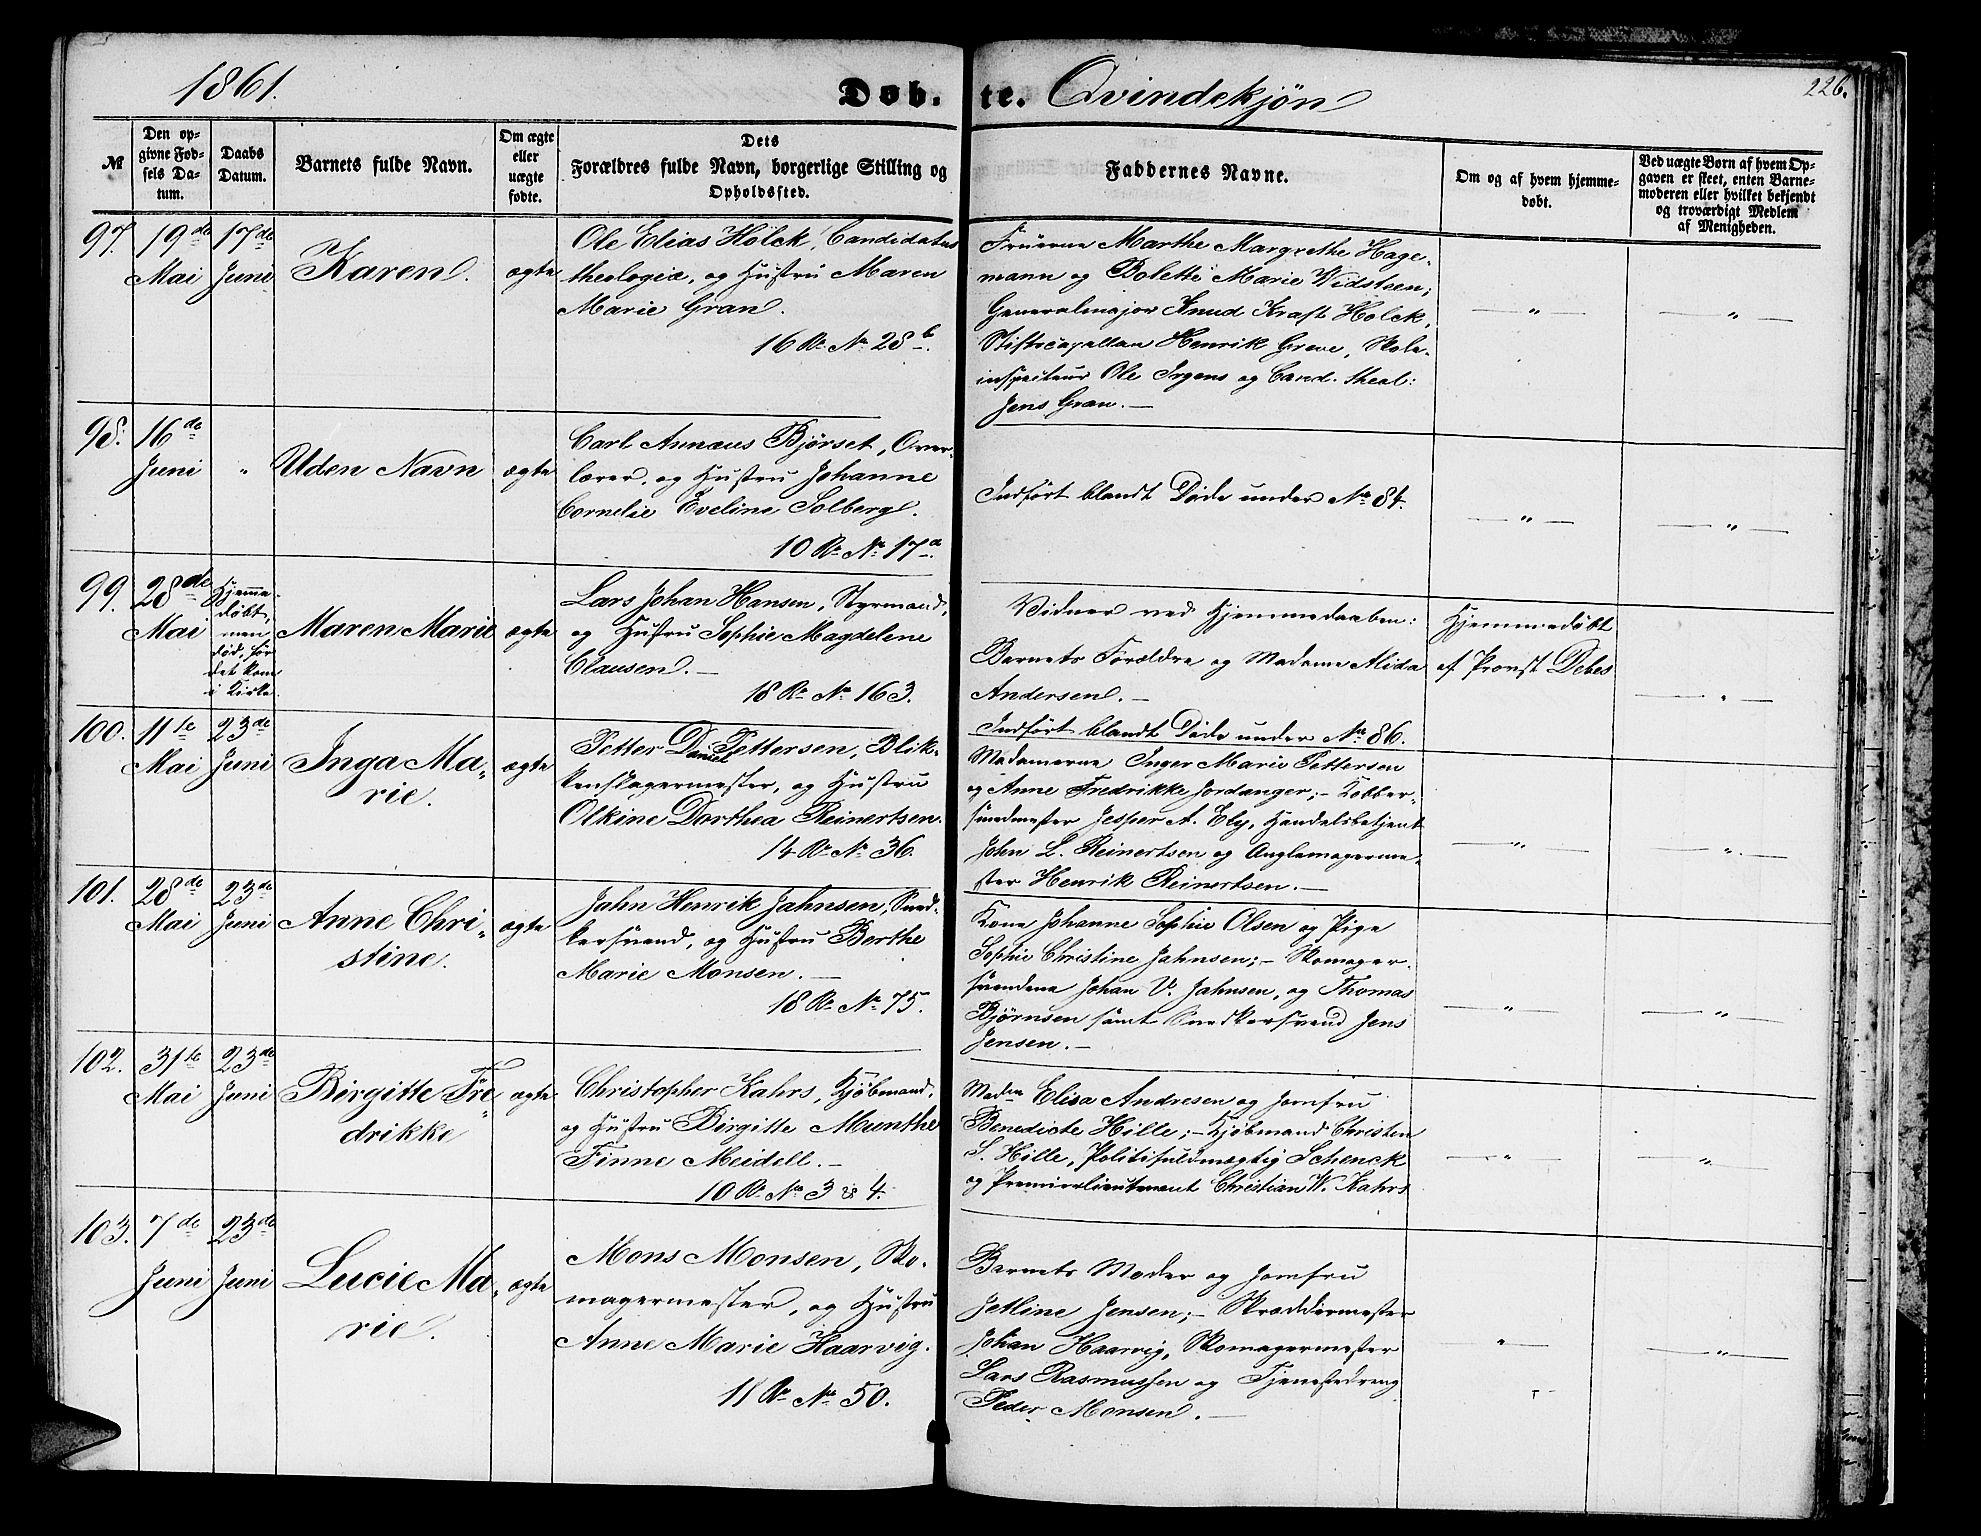 1861.
Døb- te. Qvindekjøn
226.
№
Den op-
givne Fød-
sels Da-
tum.
Daabs
Datum.
Barnets fulde Navn.
Om ægte
eller
uægte
fødte.
Dets
Forældres fulde Navn, borgerlige Stilling og
Opholdssted.
Faddernes Navne.
Om og af hvem hjemme-
døbt.
Ved uægte Børn af hvem Op-
gaven er skeet, enten Barne-
moderen eller hvilket bekjendt
og troværdigt Medlem
af Menigheden.
97. 19de
Mai
17de
Juni
Karen.
ægte
Ole Elias Holck, Candidatus
theologiæ, og Hustru Maren
Marie Gran.
16 R. No 28b.
Fruerne Marthe Margrethe Hage-
mann og Bolette Marie Widsteen;
Generalmajor Knud Kraft Holck,
Stiftscapellan Henrik Greve, Skole-
inspecteur Ole Irgens og Cand. theol:
Jens Gran.—
—"—
—"—
98. 16de
Juni
"
Uden Navn
ægte
Carl Annæus Bjørset, Over-
lærer, og Hustru Johanne
Cornelie Eveline Solberg.
10 R. No 17a.
Indført blandt Døde under No 84.
—"—
—"—
99. 28de
Mai
Hjemme-
døbt,
men
død, før
det kom
i Kirke.
Maren Marie
ægte
Lars Johan Hansen, Styrmand,
og Hustru Sophie Magdelene
Clausen.—
18 R. No 163.
Vidner ved Hjemmedaaben:
Barnets Forældre og Madame Alida
Andersen.—
Indført blandt Døde under No 86.
Hjemmedøbt
af Provst Debes
—"—
100. 11te
Mai
23de
Juni
Inga Ma-
rie.
ægte
Petter Daniel Pettersen, Blik-
kenslagermester, og Hustru
Olkine Dorthea Reinertsen.
14 R. No 36.
Madamerne Inger Marie Pettersen
og Anne Fredrikke Jordanger;- Kobber-
smedmester Jesper A. Ely, Handelsbetjent
John L. Reinertsen og Anglemagerme-
ster Henrik Reinertsen.—
—"—
—"—
101. 28de
Mai
23de
Juni
Anne Chri-
stine.
ægte
Jahn Henrik Jahnsen, Sned-
kersvend, og Hustru Berthe
Marie Monsen.—
18 R. No 75.
Kone Johanne Sophie Olsen og Pige
Sophie Christine Jahnsen;- Skomager-
svendene Johan V. Jahnsen, og Thomas
Bjørnsen samt Snedkersvend Jens
Jensen.—
—"—
—"—
102. 31te
Mai
23de
Juni
Birgitte Fre-
drikke
ægte
Christopher Kahrs, Kjøbmand,
og Hustru Birgitte Munthe
Finne Meidell.—
10 R. No 3 & 4.
Madm Elisa Andresen og Jomfru
Benedicte Hille;- Kjøbmand Christen
S. Hille, Politifuldmægtig Schenck
og Premierlieutenant Christian W. Kahrs
—"—
—"—
103. 7de
Juni
23de
Juni
Lucie Ma-
rie.
ægte
Mons Monsen, Sko-
magermester, og Hustru
Anne Marie Haarvig.
11 R. No 50.
Barnets Moder og Jomfru
Jetline Jensen;- Skræddermester
Johan Haarvig, Skomagermester
Lars Rasmussen og Tjenestedreng
Peder Monsen.—
"
—"—